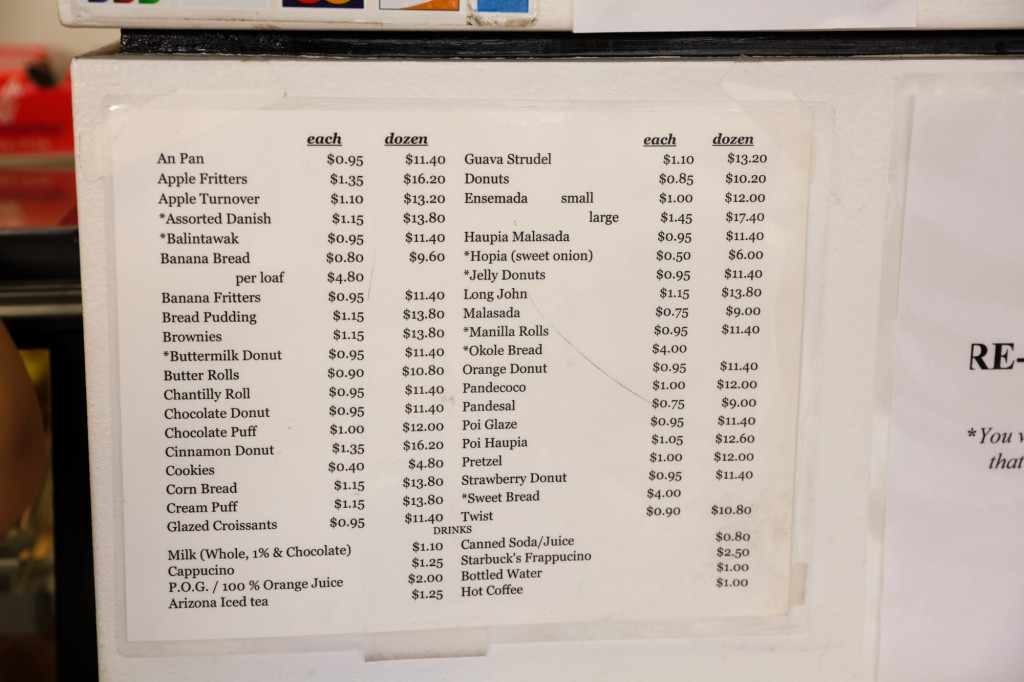 each dozen each dozen
An Pan $0.95 $11.40 Guava Strudel $1.10 $13.20
Apple Fritters $1.35 $16.20 Donuts $0.85 $10.20
Apple Turnover $1.10 $13.20 Ensemada small $1.00 $12.00
*Assorted Danish $1.15 $13.80 large $1.45 $17.40
*Balintawak $0.95 $11.40 Haupia Malasada $0.95 $11.40
Banana Bread $0.80 $9.60 *Hopia (sweet onion) $0.50 $6.00
per loaf $4.80 *Jelly Donuts $0.95 $11.40
Banana Fritters $0.95 $11.40 Long John $1.15 $13.80
Bread Pudding $1.15 $13.80 Malasada $0.75 $9.00
Brownies $1.15 $13.80 *Manilla Rolls $0.95 $11.40
*Buttermilk Donut $0.95 $11.40 *Okole Bread $4.00
Butter Rolls $0.90 $10.80 Orange Donut $0.95 $11.40
Chantilly Roll $0.95 $11.40 Pandecoco $1.00 $12.00
Chocolate Donut $0.95 $11.40 Pandesal $0.75 $9.00
Chocolate Puff $1.00 $12.00 Poi Glaze $0.95 $11.40
Cinnamon Donut $1.35 $16.20 Poi Haupia $1.05 $12.60
Cookies $0.40 $4.80 Pretzel $1.00 $12.00
Corn Bread $1.15 $13.80 Strawberry Donut $0.95 $11.40
Cream Puff $1.15 $13.80 *Sweet Bread $4.00
Glazed Croissants $0.95 $11.40 Twist $0.90 $10.80
DRINKS
Milk (Whole, 1% & Chocolate) $1.10 Canned Soda/Juice $0.80
Cappucino $1.25 Starbuck's Frappucino $2.50
P.O.G. / 100 % Orange Juice $2.00 Bottled Water $1.00
Arizona Iced tea $1.25 Hot Coffee $1.00
RE-
*You
that